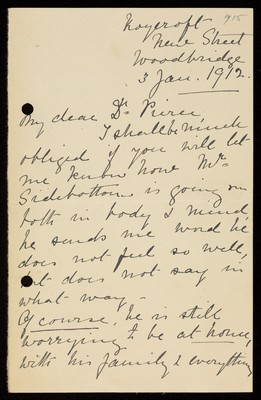 915
Roycroft
New Street
Woodbridge
3 Jan. 1912.
My dear Dr Pierce,
I shall be much
obliged if you will let
me know how Mr
Sidebottom is going on
both in body & mind,
he sends me word he
does not feel so well,
but does not say in
what way—
Of course, he is still
worrying to be at home,
with his family & everything